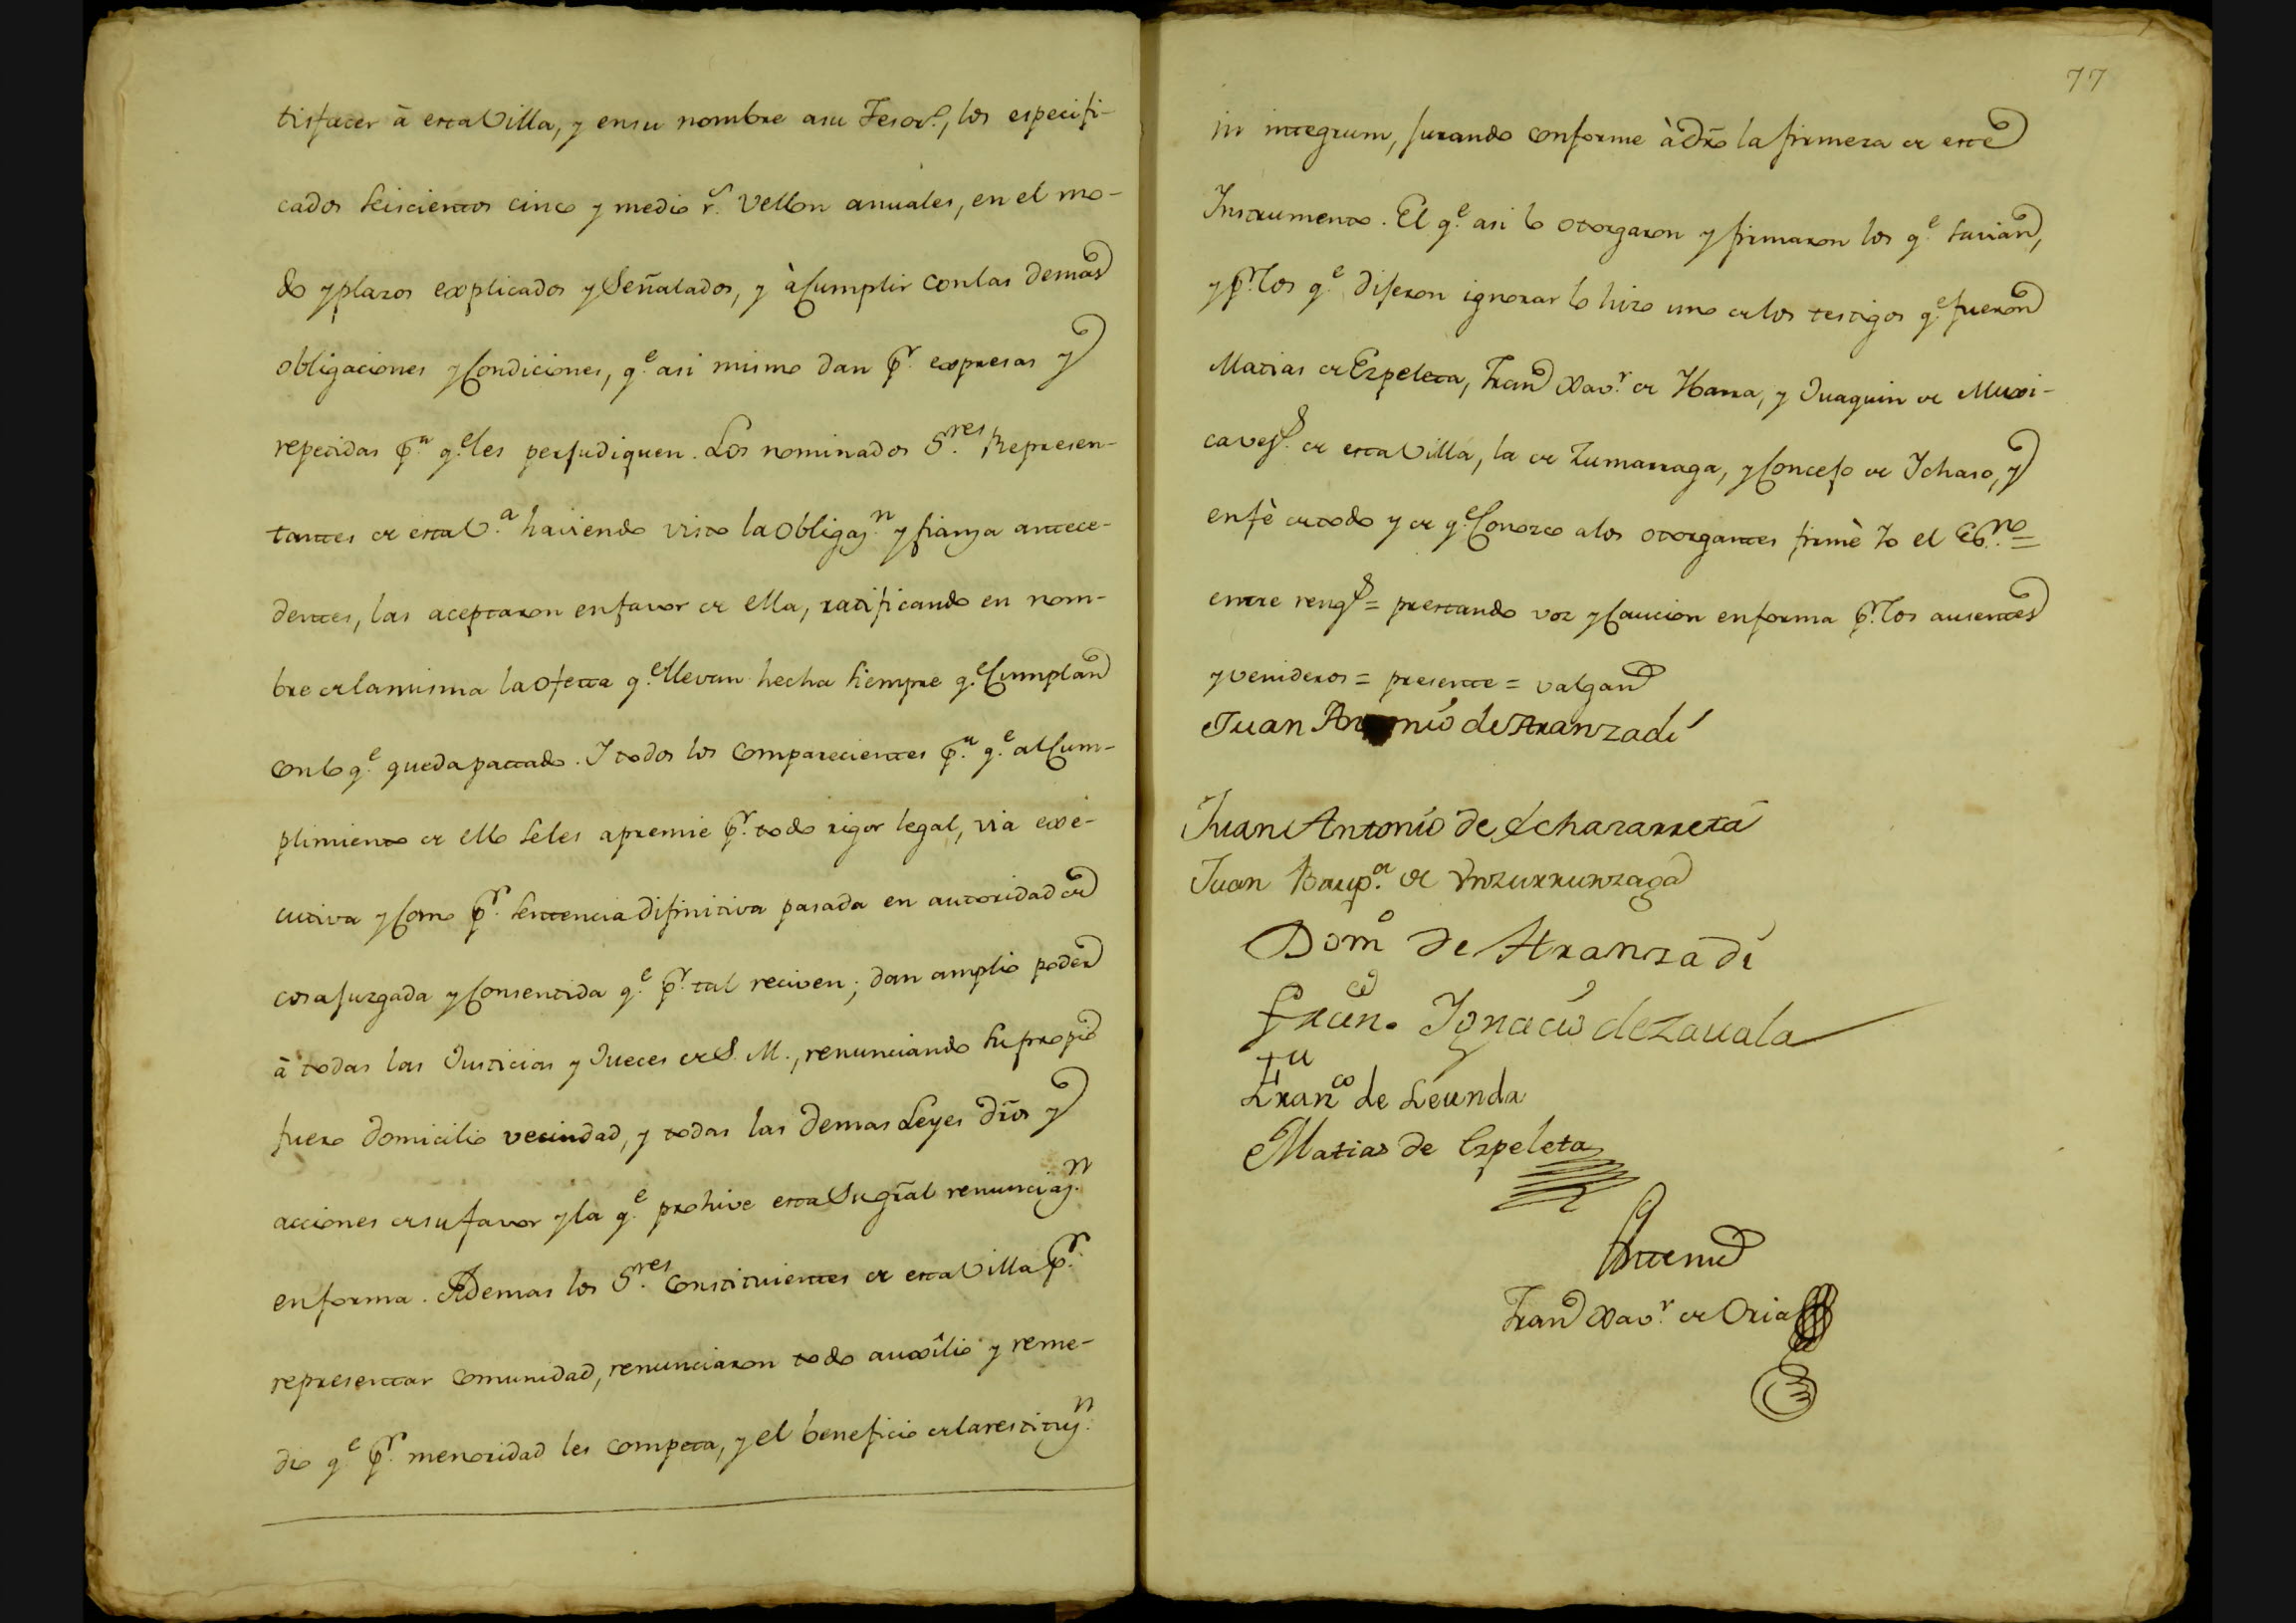 tisfacer à esta Villa, y en su nombre a su Tesor.º, los especifi-
cados seiscientos cinco y medio r.s vellon anuales, en el mo-
do y plazos explicados y señalados, y à Cumplir con las demas
obligaciones y Condiciones, q.e asi mismo dan p.r expresas y
repetidas p.a q.e les perjudiquen. Los nominados S.res Represen-
tantes de esta V.a haviendo visto la Obligaz.n y fianza antece-
dentes, las aceptaron en favor de ella, ratificando en nom-
bre de la misma la oferta q.e llevan hecha siempre q.e Cumplan
con lo q.e queda pactado. I todos los comparecientes p.a q.e al Cum-
plimiento de ello seles apremie p.r todo rigor legal, via exe-
cutiva y Como p.r sentencia difinitiva pasada en autoridad de
cosa juzgada y Consentida q.e p.r tal reciven; dan amplio poder
à todas las Justicias y Jueces de S. M., renunciando su propio
fuero domicilio vecindad, y todas las demas Leyes dros y
acciones de su favor y la q.e prohive esta Su gral renunciaz.n
en forma. Ademas los S.res Constituientes de esta Villa p.r
representar comunidad, renunciaron todo auxîlio y reme-
dio q.e p.r menoridad les competa, y el beneficio de la restituz.n
77
in integrum, jurando conforme à dro la firmeza de este
Instrumento. El q.e asi lo otorgaron y firmaron los q.e savian,
y p.r los q.e dijeron ignorar lo hizo uno de los testigos q.e fueron
Matias de Ezpeleta, Fran.co Xav.r de Ybarra, y Juaquin de Muxi-
ca vez.s de esta Villa, la de Zumarraga, y Concejo de Ichaso, y
en fè de todo y de q.e Conozco a los otorgantes firmè Yo el Es.no =
entre reng.s = prestando voz y Caucion en forma p.r los ausentes
y venideros = presente = valgan
Juan Antonio de Aranzadi
Juan Antonio de Echazarreta
Juan Baup.ta de Unzurrunzaga
Dom.o de Aranzadi
Fran.co Ignacio de Zavala
Fran.co de Leunda
Matias de Ezpeleta
Antemi
Fran.co Xav.r de Oria